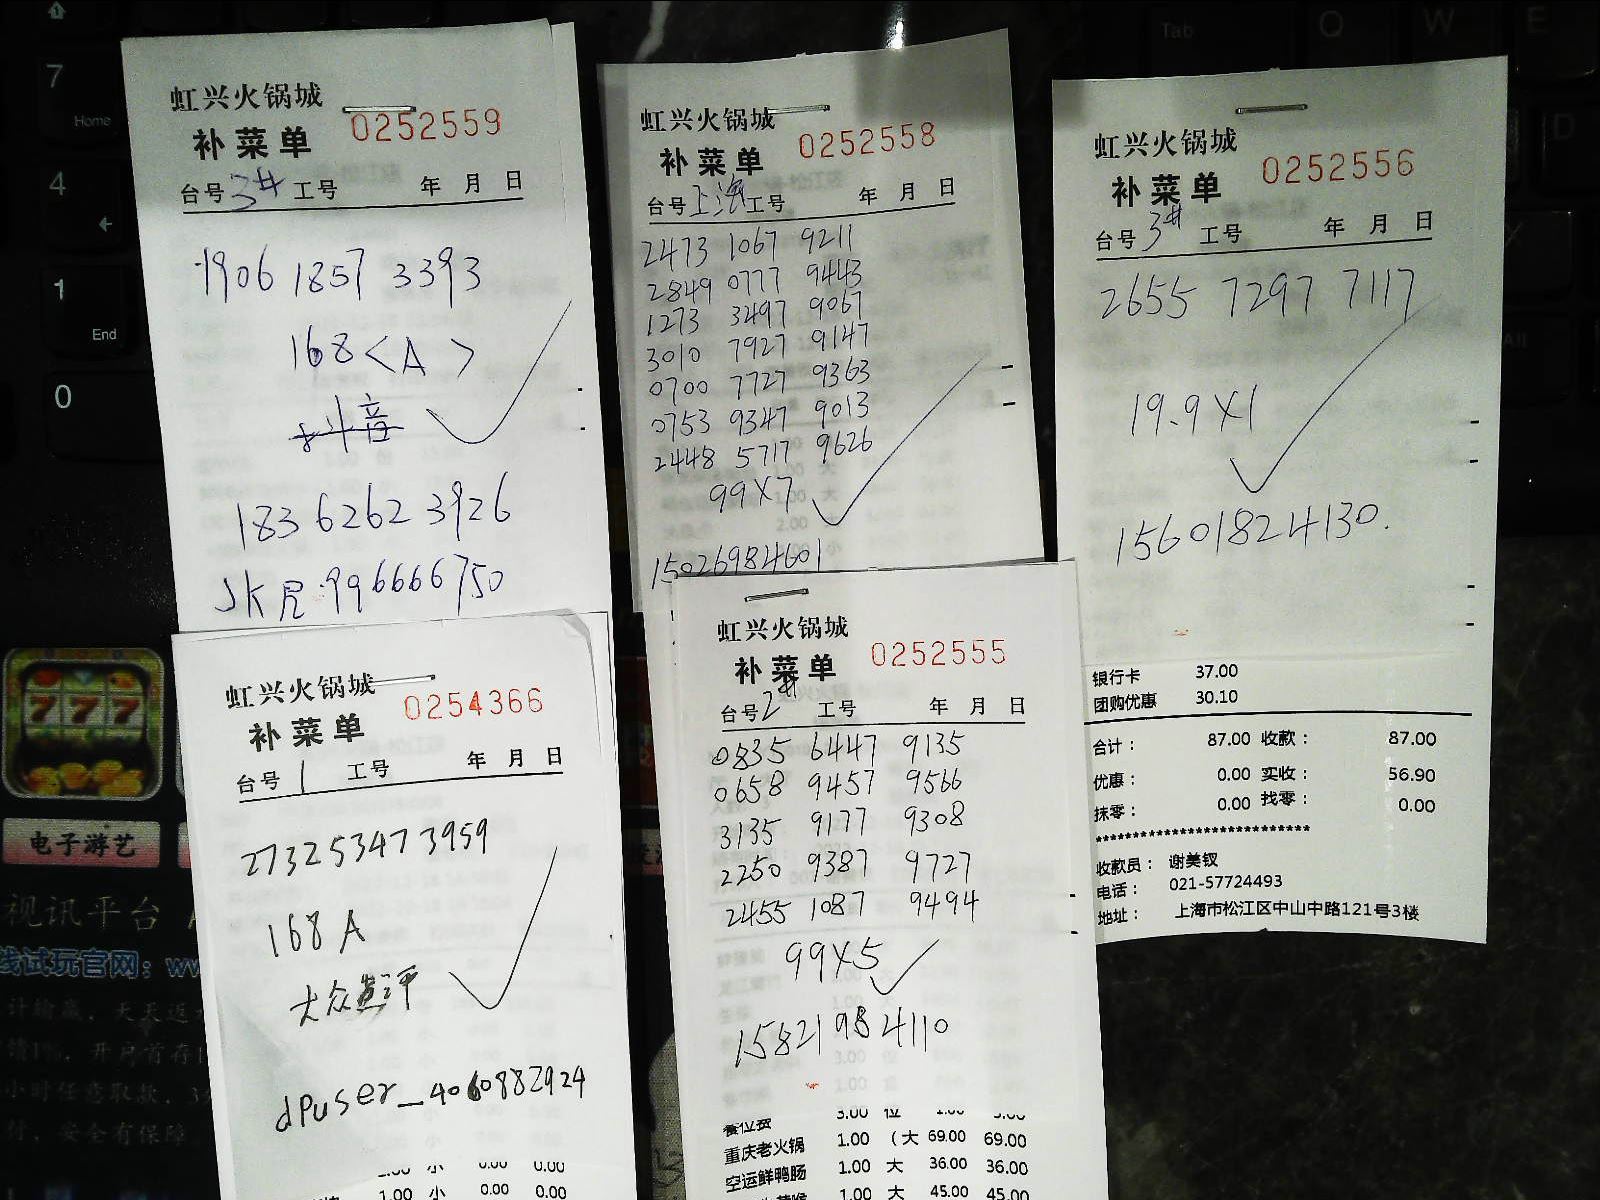 虹兴火锅城
补菜单 0252559
台号 3# 工号 年 月 日
1906 1857 3393
168<A>
抖音
183 6262 3926
996666750
虹兴火锅城
补菜单 0252558
台号 上海 工号 年 月 日
2473 1067 9211
2849 0777 9443
1273 3497 9067
3010 7927 9147
0700 7727 9363
0753 9347 9013
2448 5717 9626
99X7
15026984601
虹兴火锅城
补菜单 0252556
台号 3# 工号 年 月 日
2655 7297 7117
19.9X1
15601824130.
银行卡 37.00
团购优惠 30.10
合计: 87.00 收款: 87.00
优惠: 0.00 实收: 56.90
抹零: 0.00 找零: 0.00
收款员: 谢美钗
电话: 021-57724493
地址: 上海市松江区中山中路121号3楼
虹兴火锅城
补菜单 0254366
台号 1 工号 年 月 日
273253473959
168A
大众点评
dpuser_4060882924
1.00 小 0.00 0.00
1.00 小 0.00 0.00
虹兴火锅城
补菜单 0252555
台号 2# 工号 年 月 日
0835 6447 9135
0658 9457 9566
3135 9177 9308
2250 9387 9727
2455 1087 9494
99X5
15821984110
餐位费 3.00 位 1.00 3.00
重庆老火锅 1.00 (大 69.00 69.00
空运鲜鸭肠 1.00 大 36.00 36.00
1.00 大 45.00 45.00
7
Home
4
1
End
0
Tab
Q
W
E
D
777
电子游艺
视讯平台
线试玩官网: